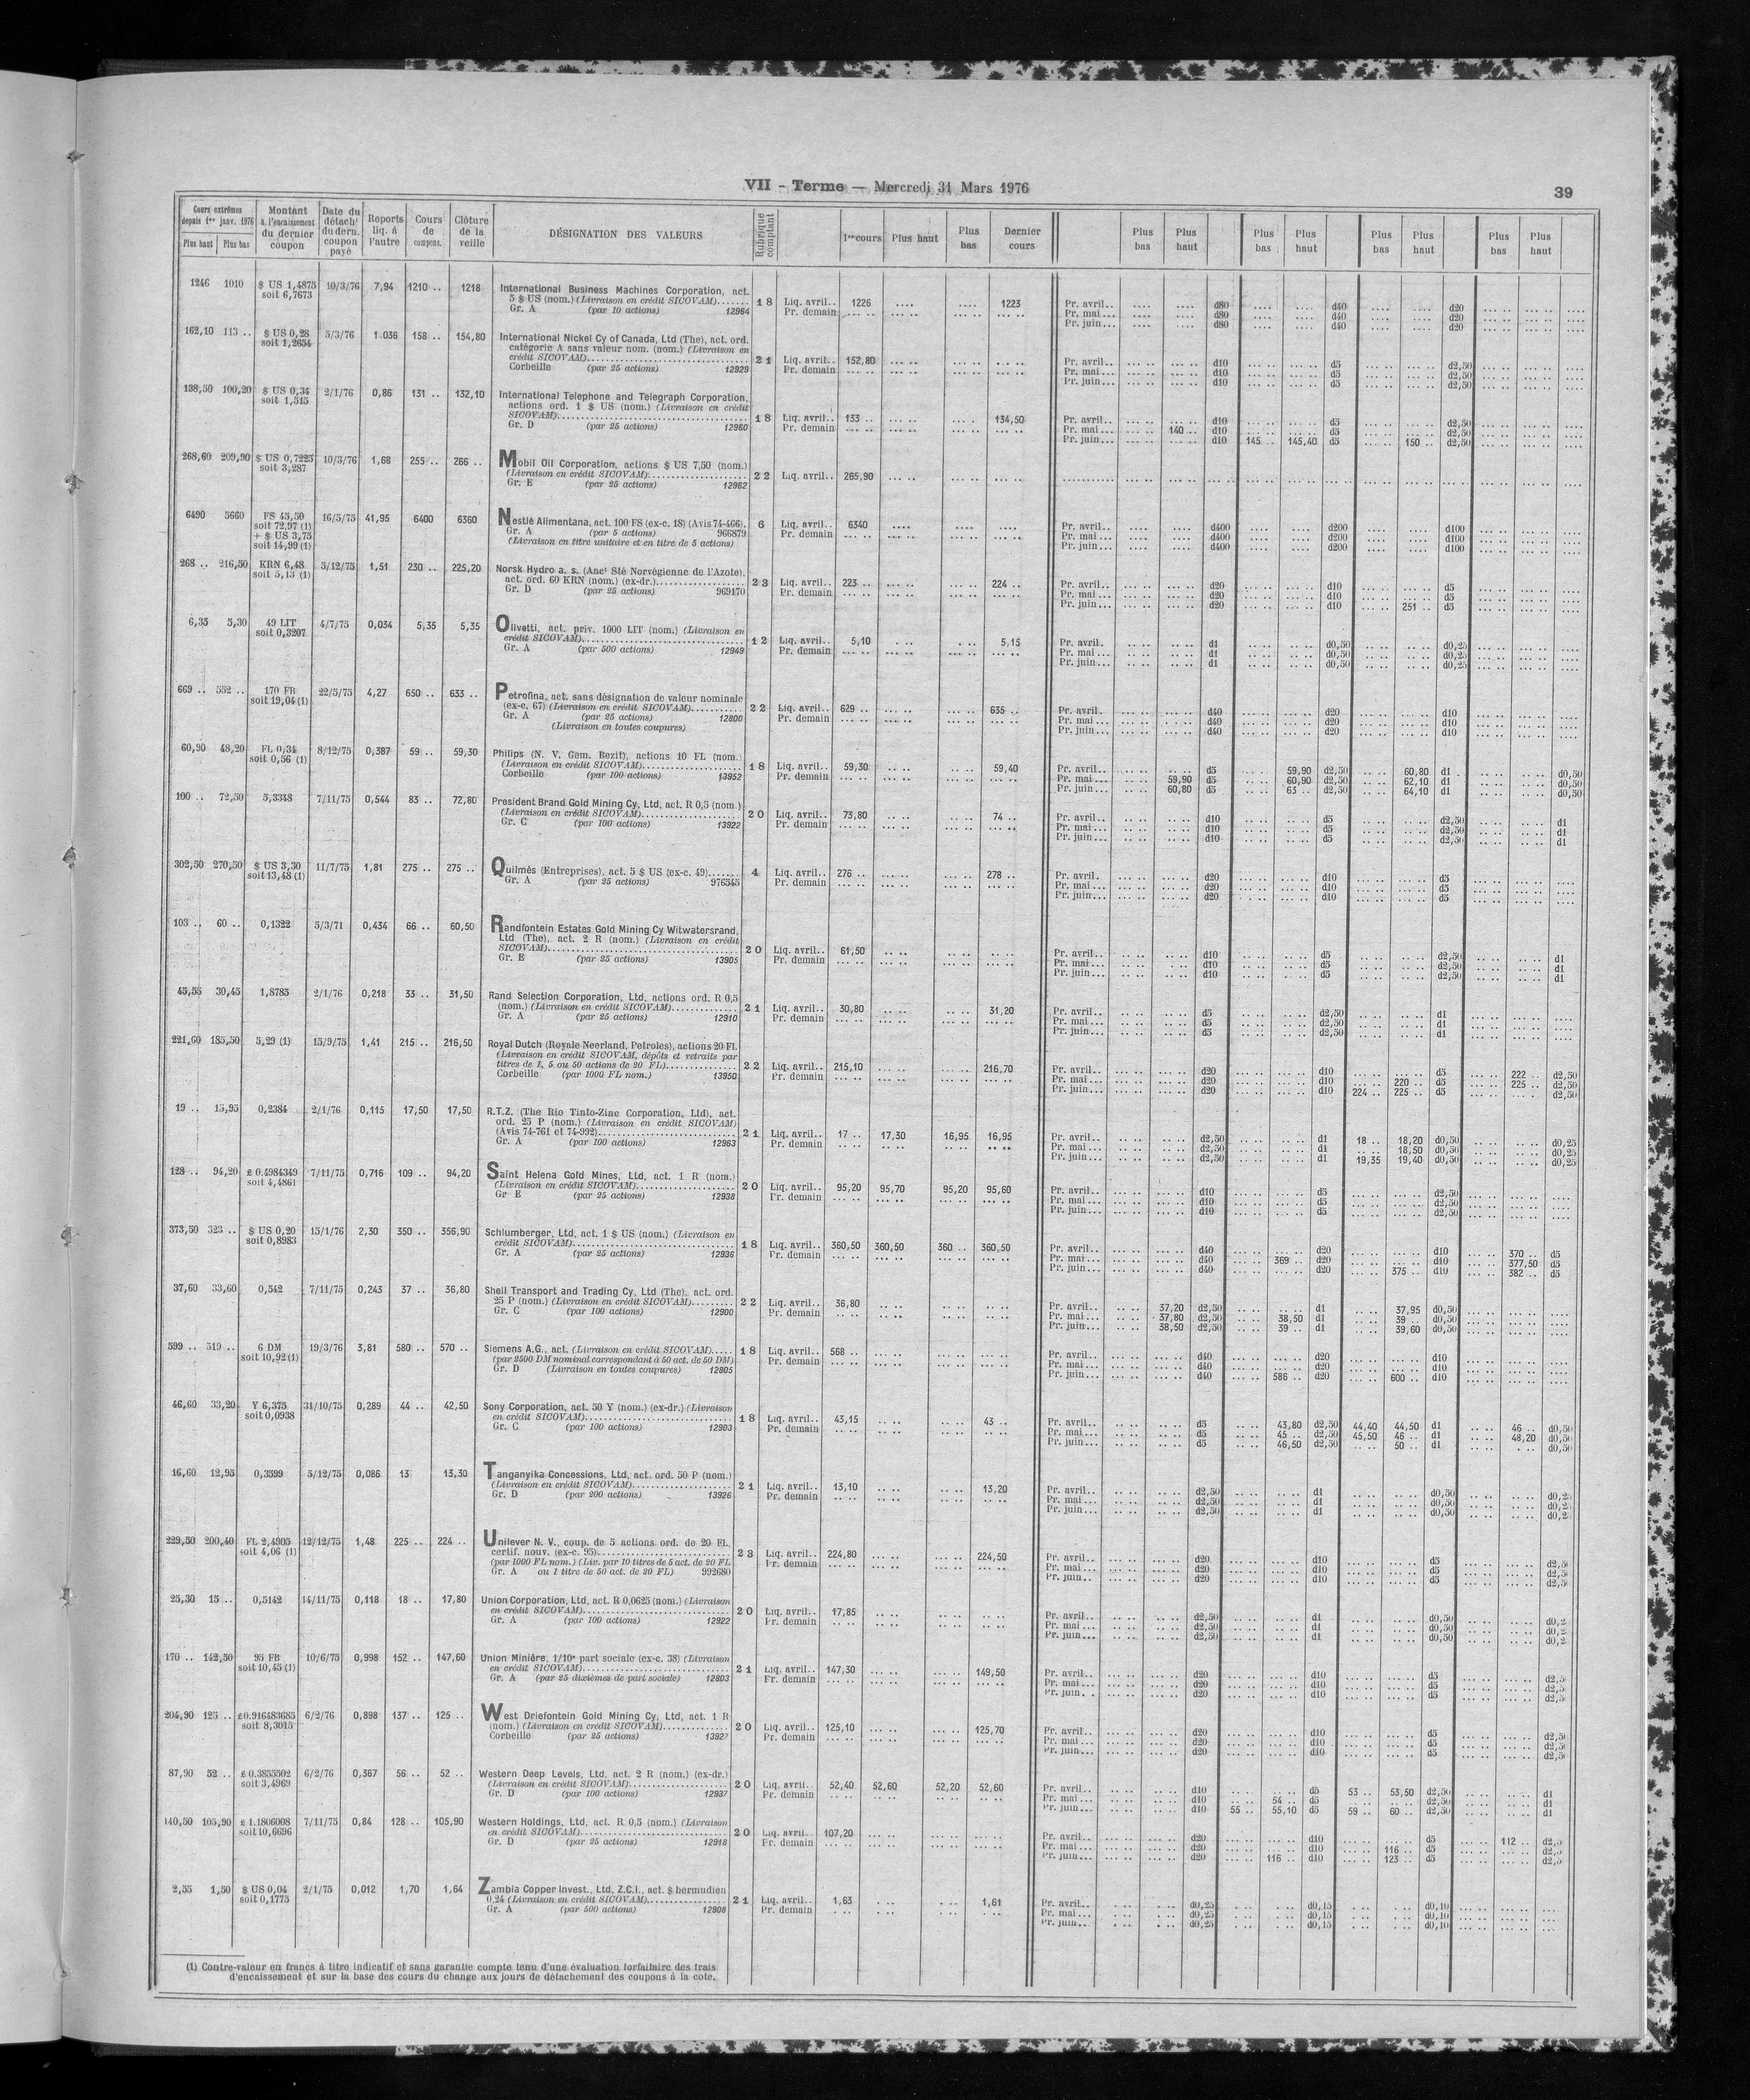 VII - Terme — Mercredi 31 Mars 1976
39
Cours extrêmes depuis 1er janv. 1976
Plus haut Plus bas
Montant à l'encaissement du dernier coupon
Date du détacht du dern. coupon payé
Reports liq. à l'autre
Cours de compens.
Clôture de la veille
DÉSIGNATION DES VALEURS
Rubrique comptant
1er cours Plus haut Plus bas Dernier cours
Plus bas Plus haut Plus bas Plus haut Plus bas Plus haut Plus bas Plus haut
1246 1010 $ US 1,4875 10/3/76 7,94 1210 .. 1218 International Business Machines Corporation, act.
soit 6,7673 5 $ US (nom.) (Livraison en crédit SICOVAM)....... 18 Liq. avril.. 1226 .... .... 1223 Pr. avril.. d80 d40 d20
Gr. A (par 10 actions) 12964 Pr. demain Pr. mai... d80 d40 d20
Pr. juin... d80 d40 d20
162,10 113 .. $ US 0,28 5/3/76 1.036 158 .. 154,80 International Nickel Cy of Canada, Ltd (The), act. ord.
soit 1,2654 catégorie A sans valeur nom. (nom.) (Livraison en
crédit SICOVAM)....... 21 Liq. avril.. 152,80 Pr. avril.. d10 d5 d2,50
Corbeille (par 25 actions) 12929 Pr. demain Pr. mai... d10 d5 d2,50
Pr. juin... d10 d5 d2,50
138,50 100,20 $ US 0,34 2/1/76 0,86 131 .. 132,10 International Telephone and Telegraph Corporation,
soit 1,515 actions ord. 1 $ US (nom.) (Livraison en crédit
SICOVAM)....... 18 Liq. avril.. 133 .. 134,50 Pr. avril.. d10 d5 d2,50
Gr. D (par 25 actions) 12960 Pr. demain Pr. mai... 140 .. d10 d5 d2,50
Pr. juin... d10 145 .. 145,40 d5 150 .. d2,50
268,60 209,90 $ US 0,7225 10/3/76 1,68 255 .. 266 .. Mobil Oil Corporation, actions $ US 7,50 (nom.)
soit 3,287 (Livraison en crédit SICOVAM)....... 22 Liq. avril.. 265,90
Gr. E (par 25 actions) 12962
6490 5660 FS 45,50 16/5/75 41,95 6400 6360 Nestlé Alimentana, act. 100 FS (ex-c. 18) (Avis 74-466). 6 Liq. avril.. 6340 Pr. avril.. d400 d200 d100
soit 72,97 (1) Gr. A (par 5 actions) 966879 Pr. demain Pr. mai... d400 d200 d100
+ $ US 3,75 (Livraison en titre unitaire et en titre de 5 actions) Pr. juin... d400 d200 d100
soit 14,99 (1)
268 .. 216,50 KRN 6,48 5/12/75 1,51 230 .. 225,20 Norsk Hydro a. s. (Anct Sté Norvégienne de l'Azote),
soit 5,13 (1) act. ord. 60 KRN (nom.) (ex-dr.)....... 23 Liq. avril.. 223 .. 224 .. Pr. avril.. d20 d10 d5
Gr. D (par 25 actions) 969170 Pr. demain Pr. mai... d20 d10 d5
Pr. juin... d20 d10 251 .. d5
6,35 5,30 49 LIT 4/7/75 0,034 5,35 5,35 Olivetti, act. priv. 1000 LIT (nom.) (Livraison en
soit 0,3207 crédit SICOVAM)....... 12 Liq. avril.. 5,10 5,15 Pr. avril. d1 d0,50 d0,25
Gr. A (par 500 actions) 12949 Pr. demain Pr. mai... d1 d0,50 d0,25
Pr. juin... d1 d0,50 d0,25
669 .. 552 .. 170 FB 22/5/75 4,27 650 .. 633 .. Petrofina, act. sans désignation de valeur nominale
soit 19,04 (1) (ex-c. 67) (Livraison en crédit SICOVAM)....... 22 Liq. avril.. 629 .. 635 .. Pr. avril. d40 d20 d10
Gr. A (par 25 actions) 12800 Pr. demain Pr. mai... d40 d20 d10
(Livraison en toutes coupures) Pr. juin... d40 d20 d10
60,90 48,20 FL 0,34 8/12/75 0,387 59 .. 59,30 Philips (N. V. Gem. Bezit), actions 10 FL (nom.)
soit 0,56 (1) (Livraison en crédit SICOVAM)....... 18 Liq. avril.. 59,30 59,40 Pr. avril.. d5 59,90 d2,50 60,80 d1 d0,50
Corbeille (par 100 actions) 13952 Pr. demain Pr. mai... 59,90 d5 60,90 d2,50 62,10 d1 d0,50
Pr. juin... 60,80 d5 63 .. d2,50 64,10 d1 d0,50
100 .. 72,50 5,3348 7/11/75 0,544 83 .. 72,80 President Brand Gold Mining Cy, Ltd, act. R 0,5 (nom.)
(Livraison en crédit SICOVAM)....... 20 Liq. avril.. 73,80 74 .. Pr. avril.. d10 d5 d2,50 d1
Gr. C (par 100 actions) 13922 Pr. demain Pr. mai... d10 d5 d2,50 d1
Pr. juin... d10 d5 d2,50 d1
302,50 270,50 $ US 3,30 11/7/75 1,81 275 .. 275 .. Quilmès (Entreprises), act. 5 $ US (ex-c. 49)....... 4 Liq. avril.. 276 .. 278 .. Pr. avril. d20 d10 d5
soit 13,48 (1) Gr. A (par 25 actions) 976345 Pr. demain Pr. mai... d20 d10 d5
Pr. juin... d20 d10 d5
103 .. 60 .. 0,1322 5/3/71 0,434 66 .. 60,50 Randfontein Estates Gold Mining Cy Witwatersrand,
Ltd (The), act. 2 R (nom.) (Livraison en crédit
SICOVAM)....... 20 Liq. avril.. 61,50 Pr. avril.. d10 d5 d2,50 d1
Gr. E (par 25 actions) 13905 Pr. demain Pr. mai... d10 d5 d2,50 d1
Pr. juin... d10 d5 d2,50 d1
45,55 30,45 1,8785 2/1/76 0,218 33 .. 31,50 Rand Selection Corporation, Ltd, actions ord. R 0,5
(nom.) (Livraison en crédit SICOVAM)....... 21 Liq. avril.. 30,80 31,20 Pr. avril.. d5 d2,50 d1
Gr. A (par 25 actions) 12910 Pr. demain Pr. mai... d5 d2,50 d1
Pr. juin... d5 d2,50 d1
221,60 185,50 5,29 (1) 15/9/75 1,41 215 .. 216,50 Royal Dutch (Royale Neerland, Petroles), actions 20 Fl.
(Livraison en crédit SICOVAM, dépôts et retraits par
titres de 1, 5 ou 50 actions de 20 FL)....... 22 Liq. avril.. 215,10 216,70 Pr. avril.. d20 d10 d5 222 .. d2,50
Corbeille (par 1000 FL nom.) 13950 Pr. demain Pr. mai... d20 d10 220 .. d5 225 .. d2,50
Pr. juin... d20 d10 224 .. 225 .. d5 d2,50
19 .. 15,95 0,2384 2/1/76 0,115 17,50 17,50 R.T.Z. (The Rio Tinto-Zinc Corporation, Ltd), act.
ord. 25 P (nom.) (Livraison en crédit SICOVAM)
(Avis 74-761 et 74-992)....... 21 Liq. avril.. 17 .. 17,30 16,95 16,95 Pr. avril.. d2,50 d1 18 .. 18,20 d0,50 d0,25
Gr. A (par 100 actions) 12963 Pr. demain Pr. mai... d2,50 d1 18,50 d0,50 d0,25
Pr. juin... d2,50 d1 19,35 19,40 d0,50 d0,25
128 .. 94,20 £ 0.4984349 7/11/75 0,716 109 .. 94,20 Saint Helena Gold Mines, Ltd, act. 1 R (nom.)
soit 4,4861 (Livraison en crédit SICOVAM)....... 20 Liq. avril.. 95,20 95,70 95,20 95,60 Pr. avril.. d10 d5 d2,50
Gr E (par 25 actions) 12938 Pr. demain Pr. mai... d10 d5 d2,50
Pr. juin... d10 d5 d2,50
373,50 323 .. $ US 0,20 15/1/76 2,30 350 .. 356,90 Schlumberger, Ltd, act. 1 $ US (nom.) (Livraison en
soit 0,8983 crédit SICOVAM)....... 18 Liq. avril.. 360,50 360,50 360 .. 360,50 Pr. avril.. d40 d20 d10 370 .. d5
Gr. A (par 25 actions) 12936 Pr. demain Pr. mai... d40 369 .. d20 d10 377,50 d5
Pr. juin... d40 d20 375 .. d10 382 .. d5
37,60 33,60 0,542 7/11/75 0,243 37 .. 36,80 Shell Transport and Trading Cy, Ltd (The), act. ord.
25 P (nom.) (Livraison en crédit SICOVAM)....... 22 Liq. avril.. 36,80 Pr. avril.. 37,20 d2,50 d1 37,95 d0,50
Gr. C (par 100 actions) 12900 Pr. demain Pr. mai... 37,80 d2,50 38,50 d1 39 .. d0,50
Pr. juin... 38,50 d2,50 39 .. d1 39,60 d0,50
599 .. 519 .. 6 DM 19/3/76 3,81 580 .. 570 .. Siemens A.G., act. (Livraison en crédit SICOVAM)..... 18 Liq. avril.. 568 .. Pr. avril.. d40 d20 d10
soit 10,92 (1) (par 2500 DM nominal correspondant à 50 act. de 50 DM) Pr. demain Pr. mai... d40 d20 d10
Gr. D (Livraison en toutes coupures) 12805 Pr. juin... d40 586 .. d20 600 .. d10
46,60 33,20 Y 6,375 31/10/75 0,289 44 .. 42,50 Sony Corporation, act. 50 Y (nom.) (ex-dr.) (Livraison
soit 0,0938 en crédit SICOVAM)....... 18 Liq. avril.. 43,15 43 .. Pr. avril.. d5 43,80 d2,50 44,40 44,50 d1 46 .. d0,50
Gr. C (par 100 actions) 12903 Pr. demain Pr. mai... d5 45 .. d2,50 45,50 46 .. d1 48,20 d0,50
Pr. juin... d5 46,50 d2,50 50 .. d1 d0,50
16,60 12,95 0,3599 5/12/75 0,086 13 13,30 Tanganyika Concessions, Ltd, act. ord. 50 P (nom.)
(Livraison en crédit SICOVAM)....... 21 Liq. avril.. 13,10 13,20 Pr. avril.. d2,50 d1 d0,50
Gr. D (par 200 actions) 13926 Pr. demain Pr. mai... d2,50 d1 d0,50
Pr. juin... d2,50 d1 d0,50
229,50 200,40 FL 2,4905 12/12/75 1,48 225 .. 224 .. Unilever N. V., coup. de 5 actions ord. de 20 FL,
soit 4,06 (1) certif. nouv. (ex-c. 95)....... 23 Liq. avril.. 224,80 224,50 Pr. avril.. d20 d10 d5
(par 1000 FL nom.) (Liv. par 10 titres de 5 act. de 20 FL Pr. demain Pr. mai... d20 d10 d5
Gr. A ou 1 titre de 50 act. de 20 FL) 992680 Pr. juin.. d20 d10 d5
25,30 15 .. 0,5142 14/11/75 0,118 18 .. 17,80 Union Corporation, Ltd, act. R 0,0625 (nom.) (Livraison
en crédit SICOVAM)....... 20 Liq. avril.. 17,85 Pr. avril.. d2,50 d1 d0,50
Gr. A (par 100 actions) 12922 Pr. demain Pr. mai... d2,50 d1 d0,50
Pr. juin... d2,50 d1 d0,50
170 .. 142,50 95 FB 10/6/75 0,998 152 .. 147,60 Union Minière, 1/10e part sociale (ex-c. 38) (Livraison
soit 10,45 (1) en crédit SICOVAM)....... 21 Liq. avril.. 147,30 149,50 Pr. avril.. d20 d10 d5
Gr. A (par 25 dixièmes de part sociale) 12803 Pr. demain Pr. mai... d20 d10 d5
Pr. juin.. d20 d10 d5
204,90 125 .. £0.916483685 6/2/76 0,898 137 .. 125 .. West Driefontein Gold Mining Cy, Ltd, act. 1 R
soit 8,3015 (nom.) (Livraison en crédit SICOVAM)....... 20 Liq. avril.. 125,10 125,70 Pr. avril.. d20 d10 d5
Corbeille (par 25 actions) 13927 Pr. demain Pr. mai... d20 d10 d5
Pr. juin... d20 d10 d5
87,90 52 .. £ 0.3855502 6/2/76 0,367 56 .. 52 .. Western Deep Levels, Ltd, act. 2 R (nom.) (ex-dr.)
soit 3,4969 (Livraison en crédit SICOVAM)....... 20 Liq. avril.. 52,40 52,60 52,20 52,60 Pr. avril.. d10 d5 53 .. 53,50 d2,50 d1
Gr. D (par 100 actions) 12937 Pr. demain Pr. mai... d10 54 .. d5 d2,50 d1
Pr. juin... d10 55 .. 55,10 d5 59 .. 60 .. d2,50 d1
140,50 105,90 £ 1.1806008 7/11/75 0,84 128 .. 105,90 Western Holdings, Ltd, act. R 0,5 (nom.) (Livraison
soit 10,6696 en crédit SICOVAM)....... 20 Liq. avril.. 107,20 Pr. avril.. d20 d10 d5 112 ..
Gr. D (par 25 actions) 12918 Pr. demain Pr. mai... d20 d10 116 .. d5
Pr. juin... d20 116 .. d10 123 .. d5
2,55 1,50 $ US 0,04 2/1/75 0,012 1,70 1,64 Zambia Copper Invest., Ltd, Z.C.I., act. $ bermudien
soit 0,1775 0,24 (Livraison en crédit SICOVAM)....... 21 Liq. avril.. 1,63 1,61 Pr. avril.. d0,25 d0,15 d0,10
Gr. A (par 500 actions) 12908 Pr. demain Pr. mai... d0,25 d0,15 d0,10
Pr. juin.. d0,25 d0,15 d0,10
(1) Contre-valeur en francs à titre indicatif et sans garantie compte tenu d'une évaluation forfaitaire des frais
d'encaissement et sur la base des cours du change aux jours de détachement des coupons à la cote.